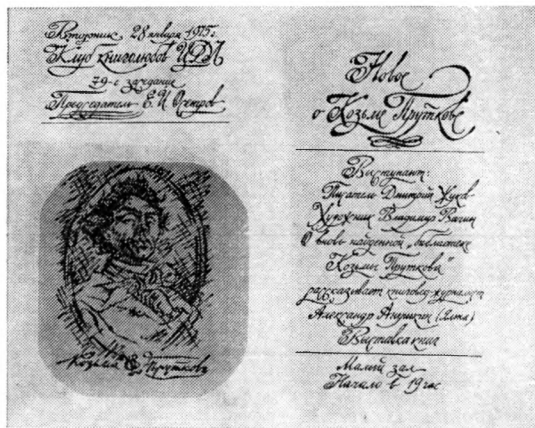 Вторник, 28 января 1975 г.
Клуб книголюбов ЦДЛ
79-е заседание
Председатель Е. И. Осетров
Козьма Прутковъ
Новое
о Козьме Пруткове
Выступают:
Писатель Дмитрий Жуков
Художник Владимир Вагин
О вновь найденной „библиотеке
Козьмы Пруткова"
рассказывает книговед-журналист
Александр Анушкин (Ялта)
Выставка книг
Малый зал
Начало в 19 час